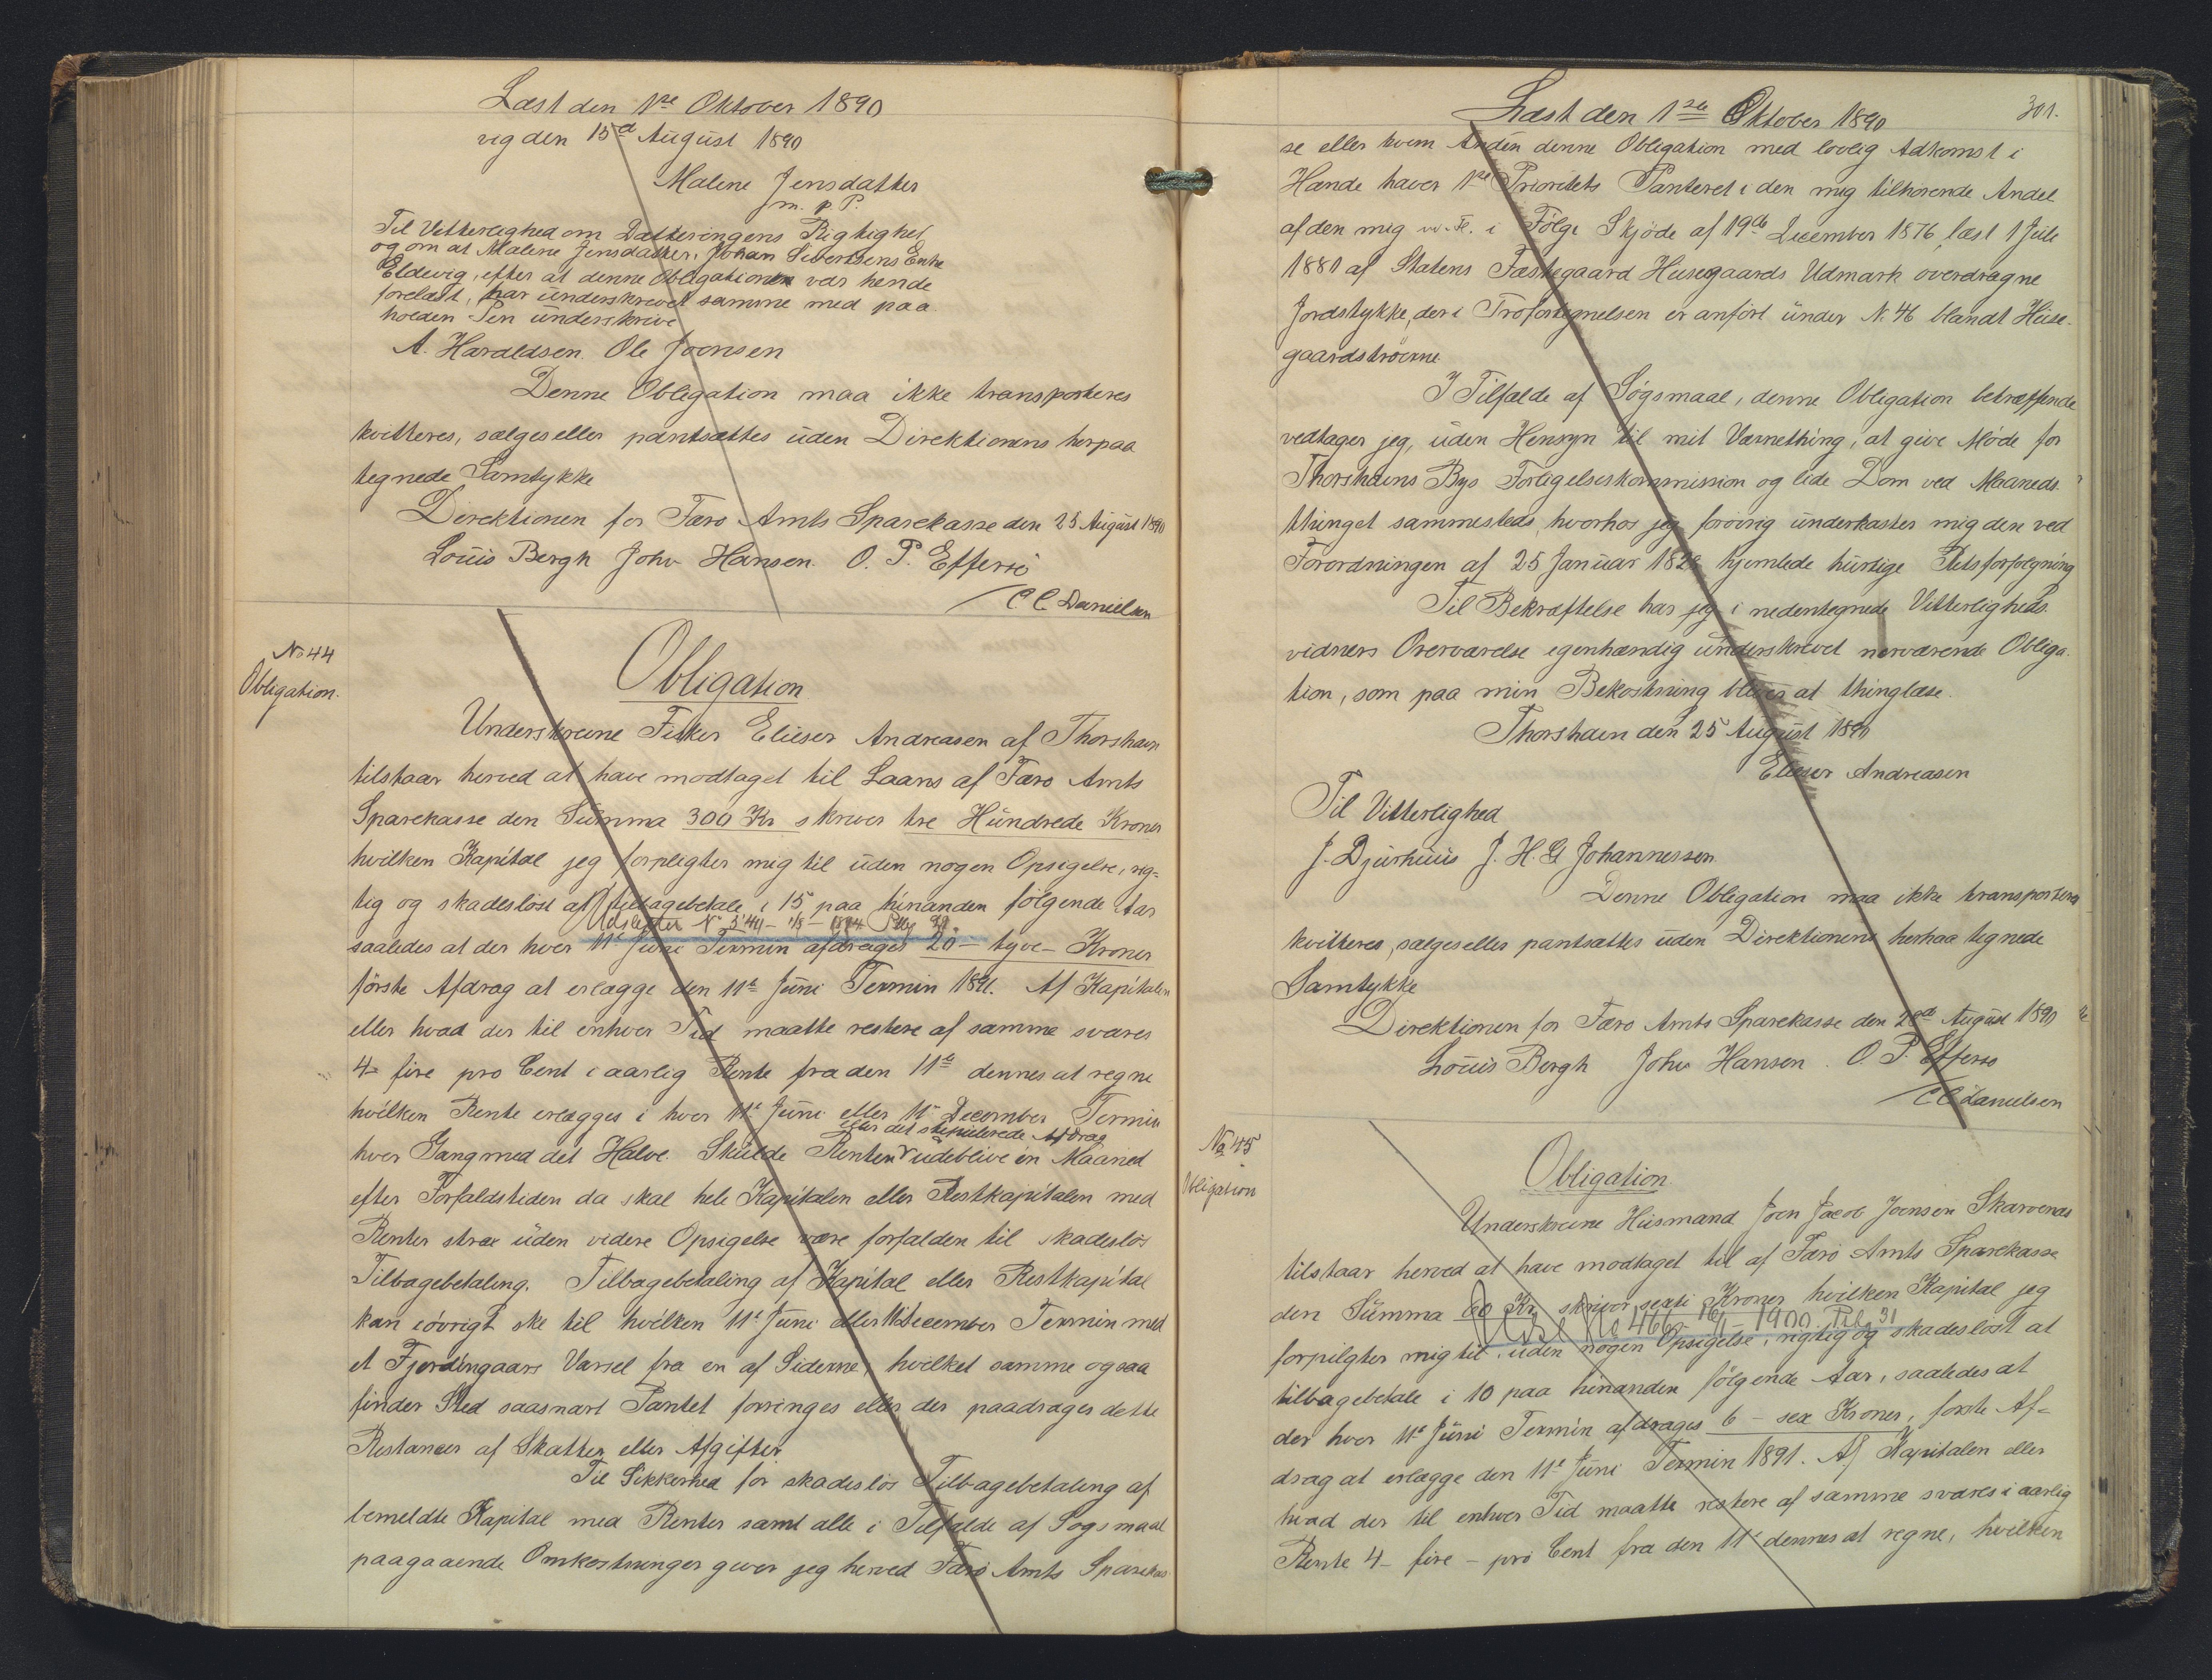 Læst den 1ste Oktober 1890
vig den 15de August 1890
Malene Jensdatter
m. p. P.
Til Vitterlighed om Datteringens Rigtighed
og om at Malene Jensdatter, Johan Sivertsens Enke
Eldevig, efter at denne Obligationen var hende
forelæst, har underskrevet samme med paa
holden Pen underskrive
A. Haraldsen. Ole Joensen
Denne Obligation maa ikke transporteres
kvitteres, sælges eller pantsættes uden Direktionens herpaa
tegnede Samtykke
Direktionen for Færø Amts Sparekasse den 25 August 1890
Louis Bergh Johs Hansen. O. P. Effersö
/ C C Danielsen
No 44
Obligation.
Obligation
Underskrevne Fisker Elieser Andreasen af Thorshavn
tilstaar herved at have modtaget til Laans af Færø Amts
Sparekasse den Summa 300 Kr skriver tre Hundrede Kroner
hvilken Kapital jeg forpligter mig til uden nogen Opsigelse, rig=
tig og skadeslöst at tilbagebetale i 15 paa hinanden fölgende Aar
Udslettet No
saaledes at der hver 11te Juni Termin afdrages 20 – tyve – Kroner
förste Afdrag at erlægge den 11te Juni Termin 1891. Af Kapitalen
eller hvad der til enhver Tid maatte restere af samme svares
4– fire pro Cent i aarlig Rente fra den 11te dennes at regne
hvilken Rente erlægges i hver 11te Juni eller 11te December Termin
eller det stipulerede Afdrag
hver Gang med det Halve. Skulde Renten udeblive en Maaned
efter Forfaldstiden da skal hele Kapitalen eller Restkapitalen med
Renter strax uden videre Opsigelse være forfalden til skadeslös
Tilbagebetaling. Tilbagebetaling af Kapital eller Restkapital
kan iövrigt ske til hvilken 11te Juni eller 11te December Termin med
et Fjerdingaars Varsel fra en af Siderne, hvilket samme ogsaa
finder Sted saasnart Pantet forringes eller der paadrages dette
Restancer af Skatter eller Afgifter.
Til Sikkerhed for skadeslös Tilbagebetaling af
bemeldte Kapital med Renter samt alle i Tilfælde af Sögsmaal
paagaaende Omkostninger giver jeg herved Færö Amts Sparekas
Læst den 1ste Oktober 1890
301.
se eller hvem Anden denne Obligation med lovlig Adkomst i
Hænde haver 1ste Prioritets Panteret i den mig tilhörende Andel
af den mig i Fölge Skjöde af 19de December 1876, læst 1 Juli
1880 af Statens Fæstegaard Husegaards Udmark overdragne
Jordstykke, der i Tröfortegnelsen er anfört under N. 46 blandt Huse-
gaardströerne.
I Tilfælde af Sögsmaal, denne Obligation betræffende
vedtager jeg, uden Hensyn til mit Værnething, at give Möde for
Thorshavns Bys Forligelseskommission og lide Dom ved Maaneds-
thinget sammesteds, hvorhos jeg forövrig underkaster mig den ved
Forordningen af 25 Januar 1828 hjemlede hurtige Retsforfölgning
Til Bekræftelse har jeg i nedentegnede Vitterligheds
vidners Overværelse egenhændig underskrevet nærværende Obliga-
tion, som paa min Bekostning bliver at thinglæse.
Thorshavn den 25 August 1890
Elieser Andreasen
Til Vitterlighed
J. Djurhuus J. H. G Johannessen.
Denne Obligation maa ikke transporteres
kvitteres, sælges eller pantsættes uden Direktionens herpaa tegnede
Samtykke
Direktionen for Færo Amts Sparekasse den August 1890
Louis Bergh Johs Hansen. O. P. Effersö
/ C C Danielsen
No 45
Obligation
Obligation.
Underskrevne Husmand Joen Jacob Joensen Skarvenæs
tilstaar herved at have modtaget til af Færö Amts Sparekasse
den Summa 60 Kr skriver sexti Kroner, hvilken Kapital jeg
Udsl No 466 – 1900. Pkl. 31
forpligter mig til uden nogen Opsigelse, rigtig og skadeslöst at
tilbagebetale i 10 paa hinanden fölgende Aar, saaledes at
der hver 11te Juni Termin afdrages 6 – sex Kroner, förste Af=
drag at erlægge den 11te Juni Termin 1891. Af Kapitalen eller
hvad der til enhver Tid maatte restere af samme svares i aarlig
Rente 4 – fire – pro Cent fra den 11te dennes at regne, hvilken